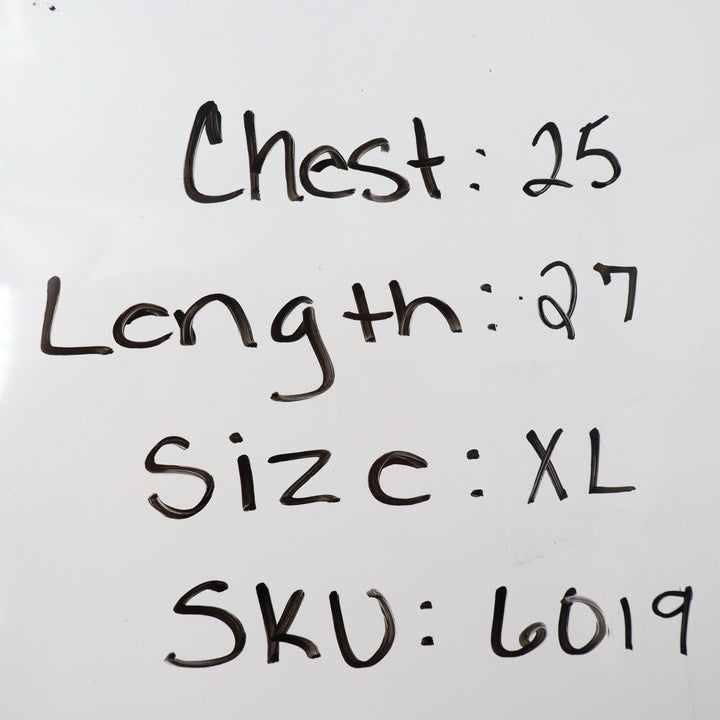 Chest: 25
Length: 27
Size: XL
SKU: 6019